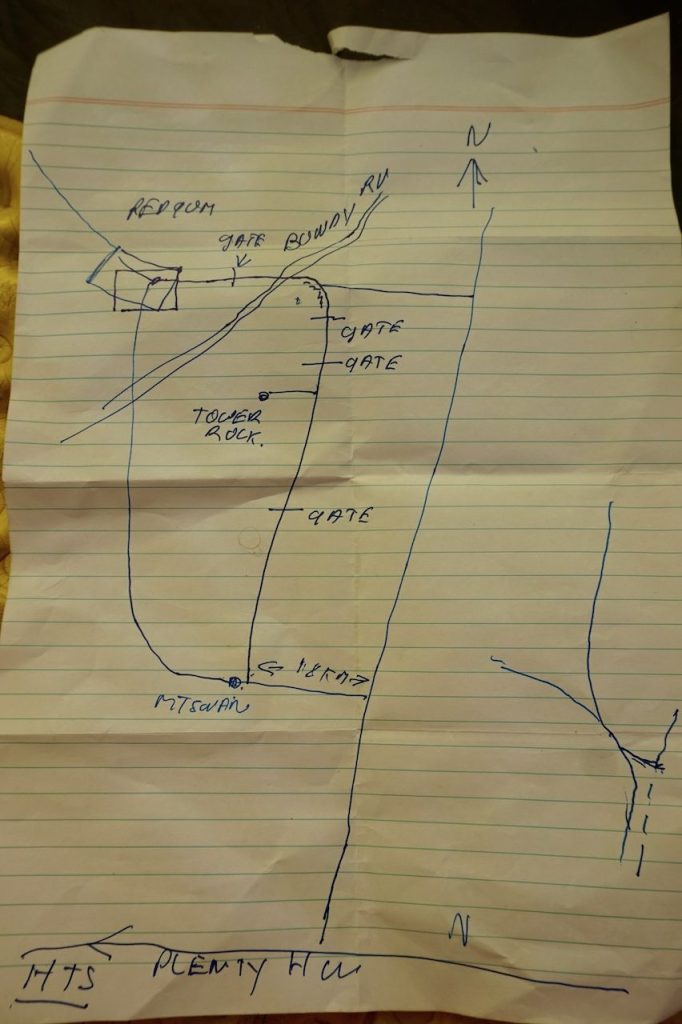 N
RV
REDGUM
BUNDY
GATE
GATE
GATE
TOWER
ROCK.
GATE
1.8KM
MTSWAN
N
PLENTY HW
HTS